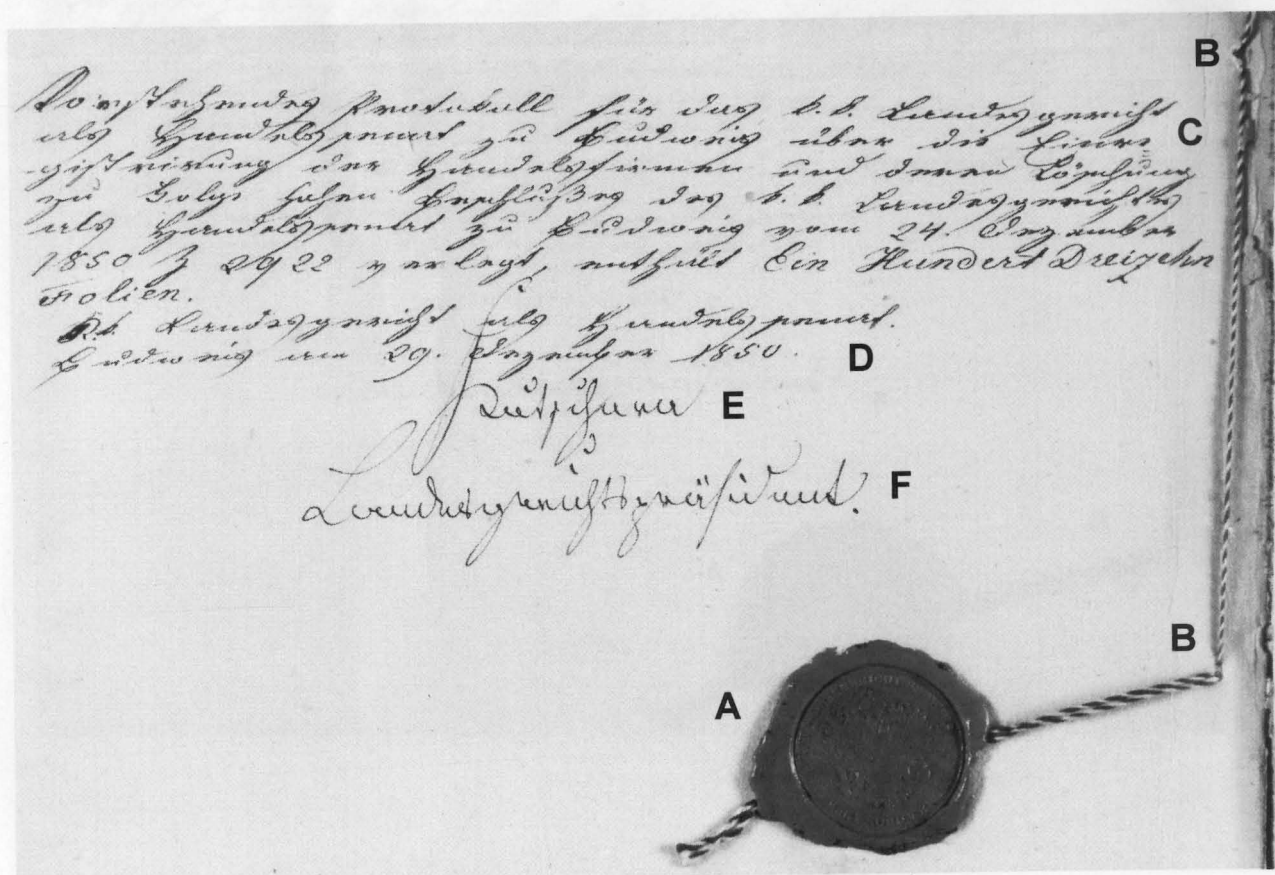 B
Vorstehendes Protokoll für das k. k. Landesgericht
als Handelssenat zu Budweis über die Einre
C
gistrirung der Handelsfirmen und deren Löschung
zu Folge hohen Beschlußes des k. k. Landesgerichtes
als Handelssenat zu Budweis vom 24. Dezember
1850 Z 2922 verlegt, enthält Ein Hundert Dreizehn
Folien.
K. k. Landesgericht als Handelssenat.
Budweis am 29. Dezember 1850.
D
Kutschera E
Landesgerichtspräsident. F
B
A